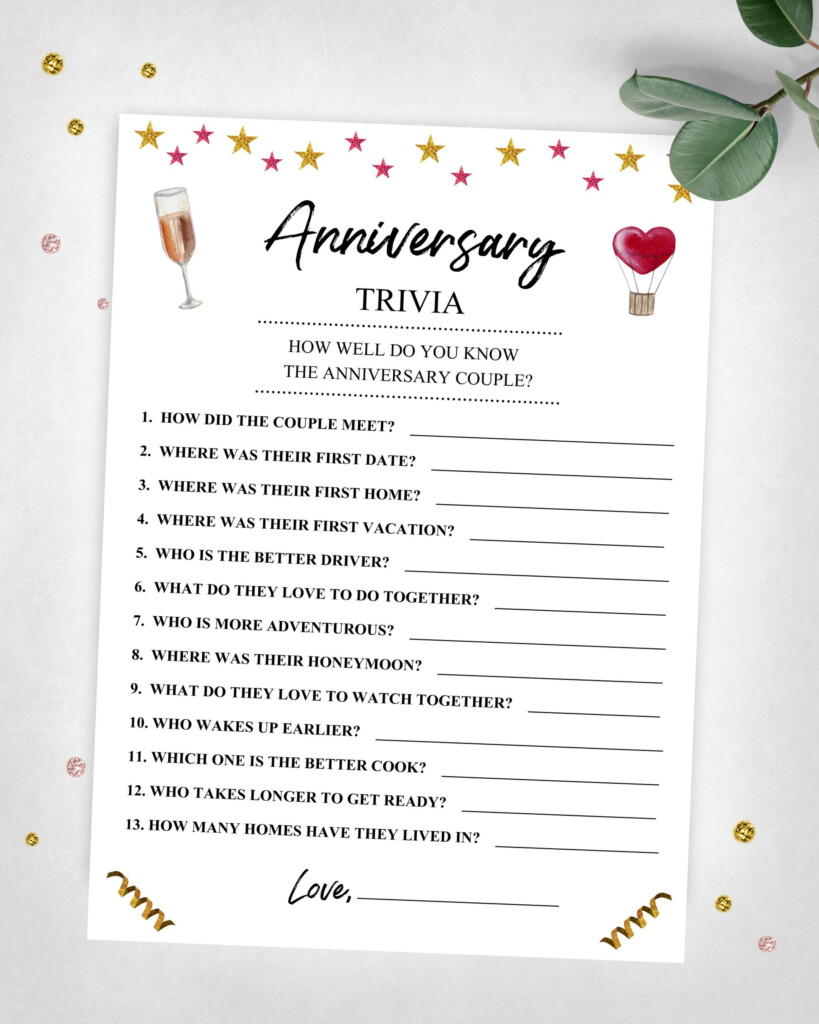 Anniversary
TRIVIA
HOW WELL DO YOU KNOW
THE ANNIVERSARY COUPLE?
1. HOW DID THE COUPLE MEET?
2. WHERE WAS THEIR FIRST DATE?
3. WHERE WAS THEIR FIRST HOME?
4. WHERE WAS THEIR FIRST VACATION?
5. WHO IS THE BETTER DRIVER?
6. WHAT DO THEY LOVE TO DO TOGETHER?
7. WHO IS MORE ADVENTUROUS?
8. WHERE WAS THEIR HONEYMOON?
9. WHAT DO THEY LOVE TO WATCH TOGETHER?
10. WHO WAKES UP EARLIER?
11. WHICH ONE IS THE BETTER COOK?
12. WHO TAKES LONGER TO GET READY?
13. HOW MANY HOMES HAVE THEY LIVED IN?
Love,